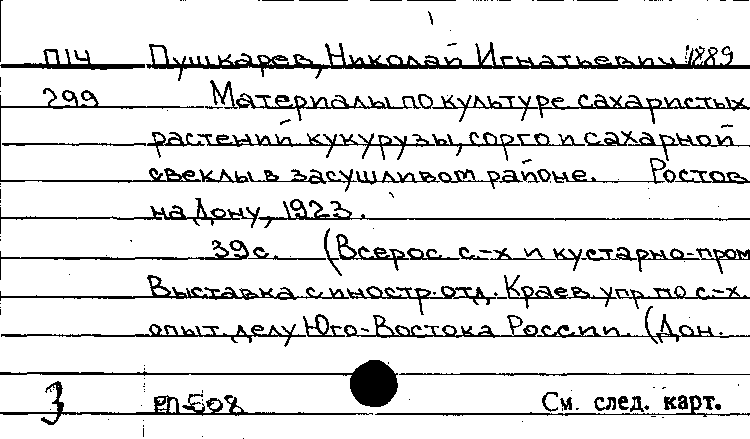 П14 Пушкарев, Николай Игнатьевич 1889
299 Материалы по культуре сахаристых
растений кукурузы, сорго и сахарной
свеклы в засушливом районе. Ростов
на Дону, 1923.
39 с. (Всерос. с.-х и кустарно-пром
Выставка с иностр. отд. Краев. упр. по с.-х.
опыт. делу Юго-Востока России. (Дон.
3 РП-508 См. след. карт.